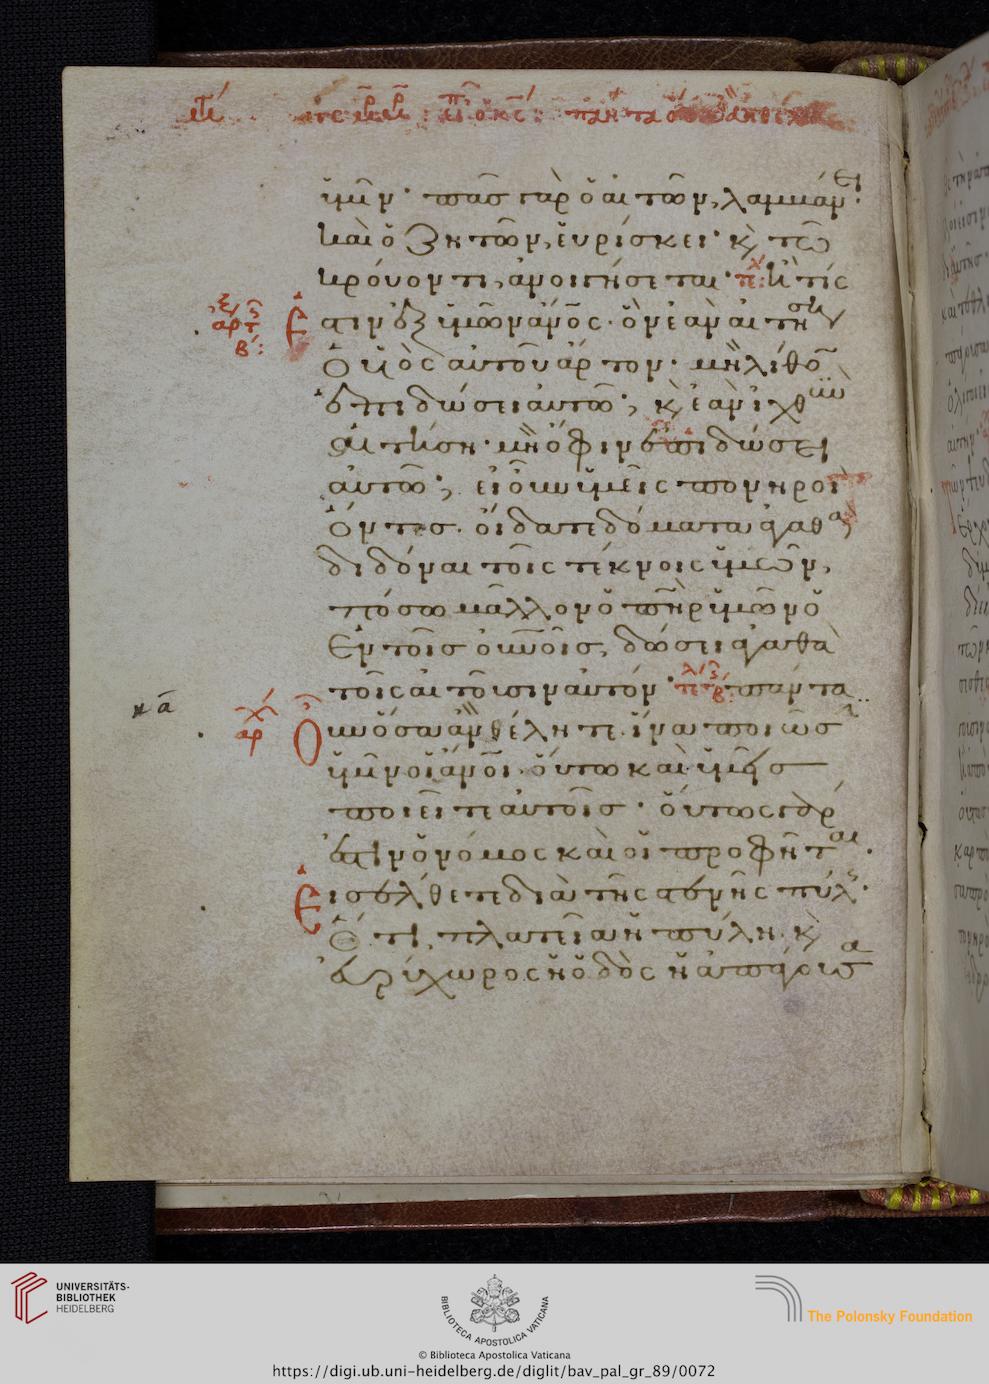 ὑμῖν· πᾶς γὰρ ὁ αἰτῶν, λαμβάνει·
καὶ ὁ ζητῶν, εὑρίσκει· κ τῶ
κρούοντι, ἀνοιγήσεται· ἢ τίς
ἐστιν ἐξ ὑμῶν ἄνος· ὃν ἐὰν αἰτήση
ὁ υἱὸς αὐτοῦ ἄρτον· μὴ λίθον
ἐπιδώσει αὐτῶ; κ ἐὰν ἰχθὺν
αἰτήση· μὴ ὄφιν ἐπιδώσει
αὐτῶ; εἰ οὖν ὑμεῖς πονηροὶ
ὄντες· οἴδατε δόματα ἀγαθὰ
διδόναι τοῖς τέκνοις ὑμῶν,
πόσω μᾶλλον ὁ πηρ ὑμῶν ὁ
ἐν τοῖς οὐνοῖς, δώσει ἀγαθὰ
τοῖς αἰτοῦσιν αὐτόν· πάντα
κα
οὖν ὅσα ἂν θέλητε· ἵνα ποιῶσιν
ὑμῖν οἱ ἄνοι· οὕτω καὶ ὑμεῖς
ποιεῖτε αὐτοῖς· οὕτως γάρ
ἐστιν ὁ νόμος καὶ οἱ προφῆται·
Εἰσέλθετε διὰ τῆς στενῆς πύλης·
ὅτι, πλατεῖα ἡ πύλη κ
εὐρύχωρος ἡ ὁδὸς ἡ ἀπάγουσα
UNIVERSITÄTS-
BIBLIOTHEK
HEIDELBERG
BIBLIOTECA APOSTOLICA VATICANA
The Polonsky Foundation
© Biblioteca Apostolica Vaticana
https://digi.ub.uni-heidelberg.de/diglit/bav_pal_gr_89/0072